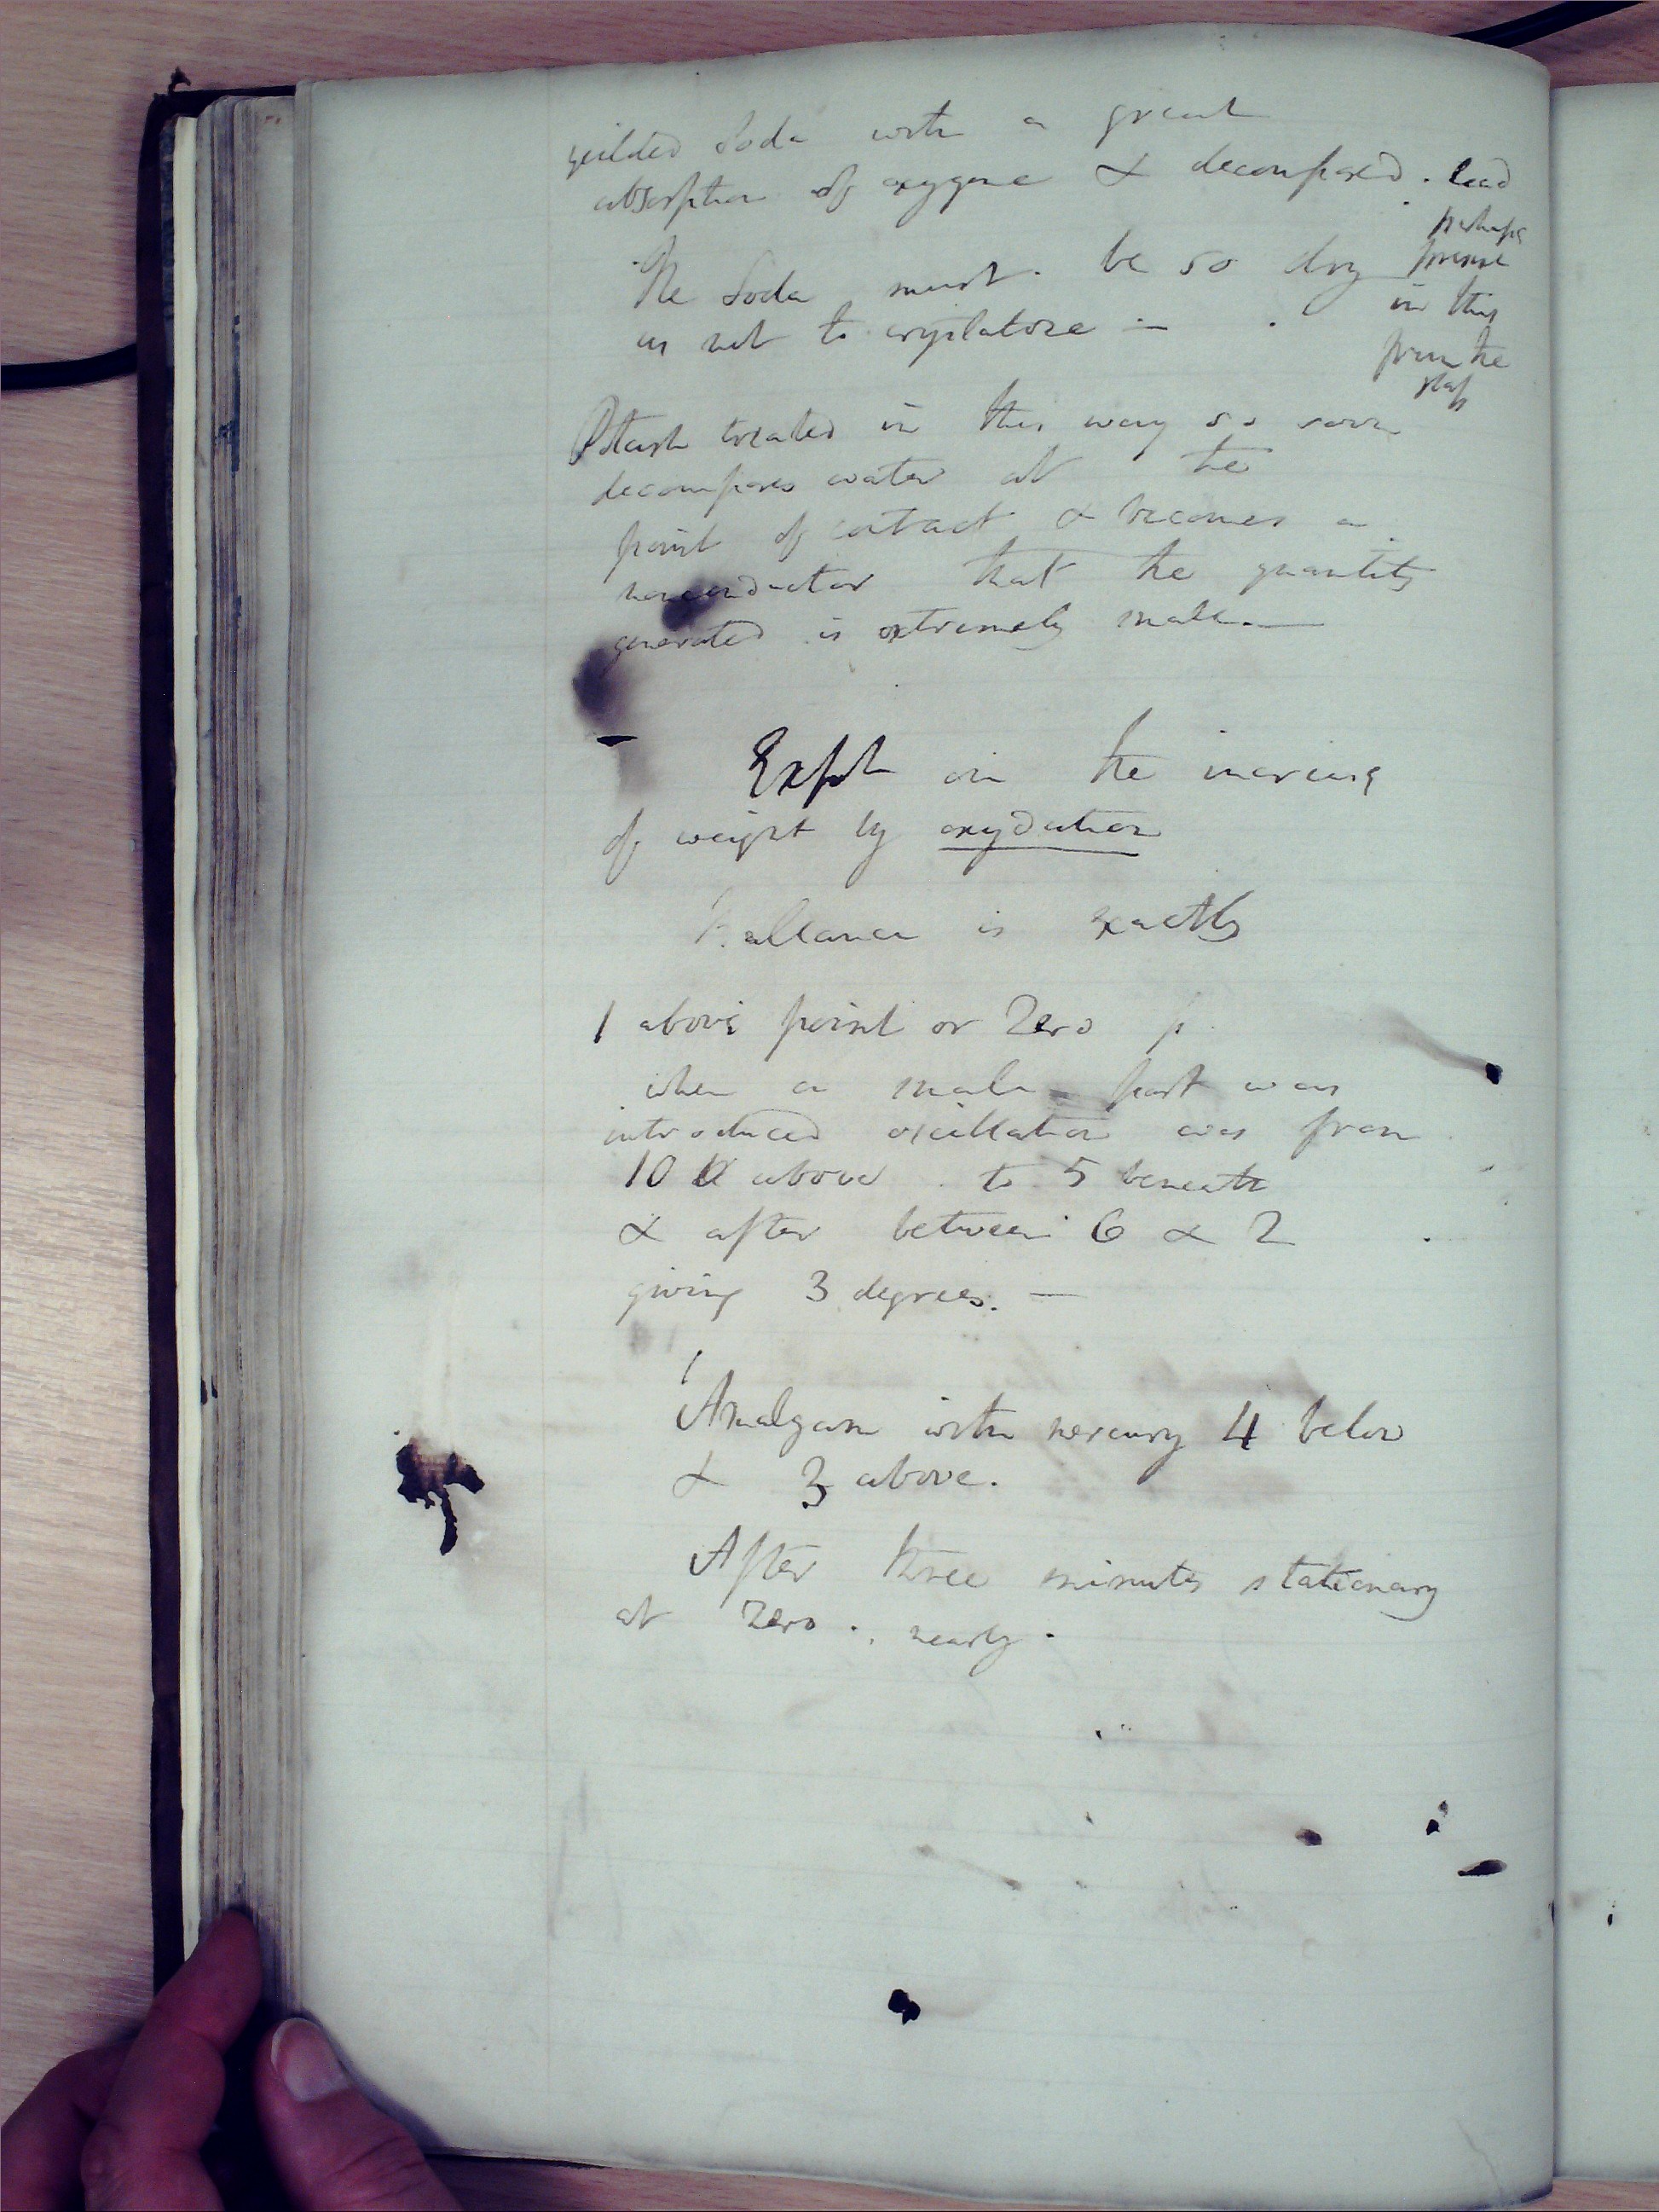 yeilded Soda with a great
absorption of oxygene & decomposed. lead
perhaps
present
in this
from the
glass
The Soda must be so dry
as not to crystalise —
Potash treated in this way so soon
decomposes water at the
point of contact & becomes a
nonconductor that the quantity
generated is extremely small. —
Expt on the increase
of weight by oxydation
Ballance is exactly
1 above point or Zero
when a small part was
introduced oscillation was from
10 above to 5 beneath
& after between 6 & 2
giving 3 degrees. —
Amalgam with mercury 4 below
& 3 above.
After three minutes stationary
at Zero. nearly.